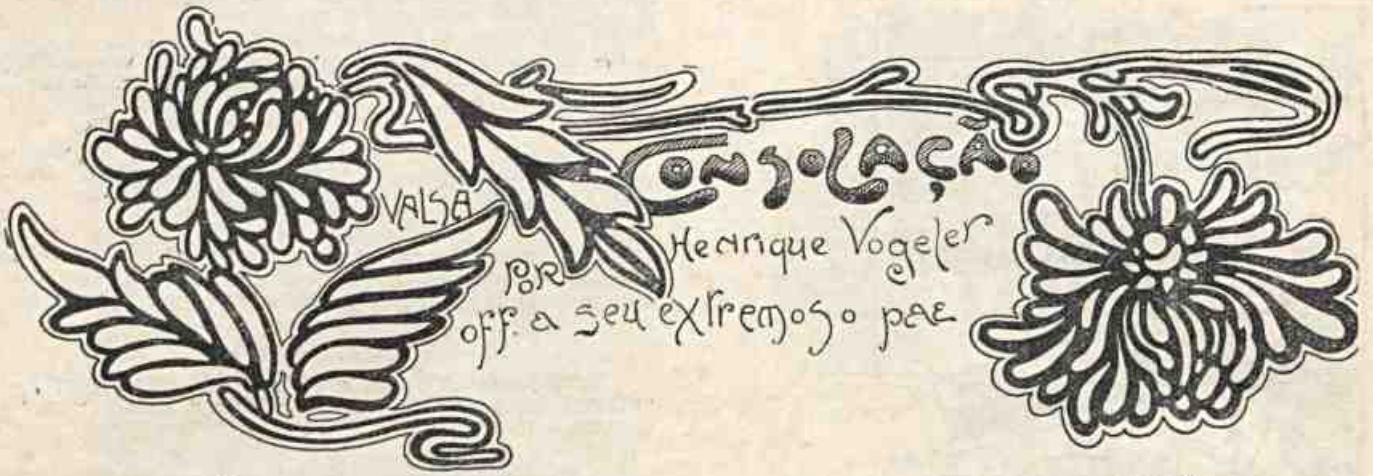 CONSOLAÇÃO
VALSA
POR Henrique Vogeler
off. a seu extremoso pae